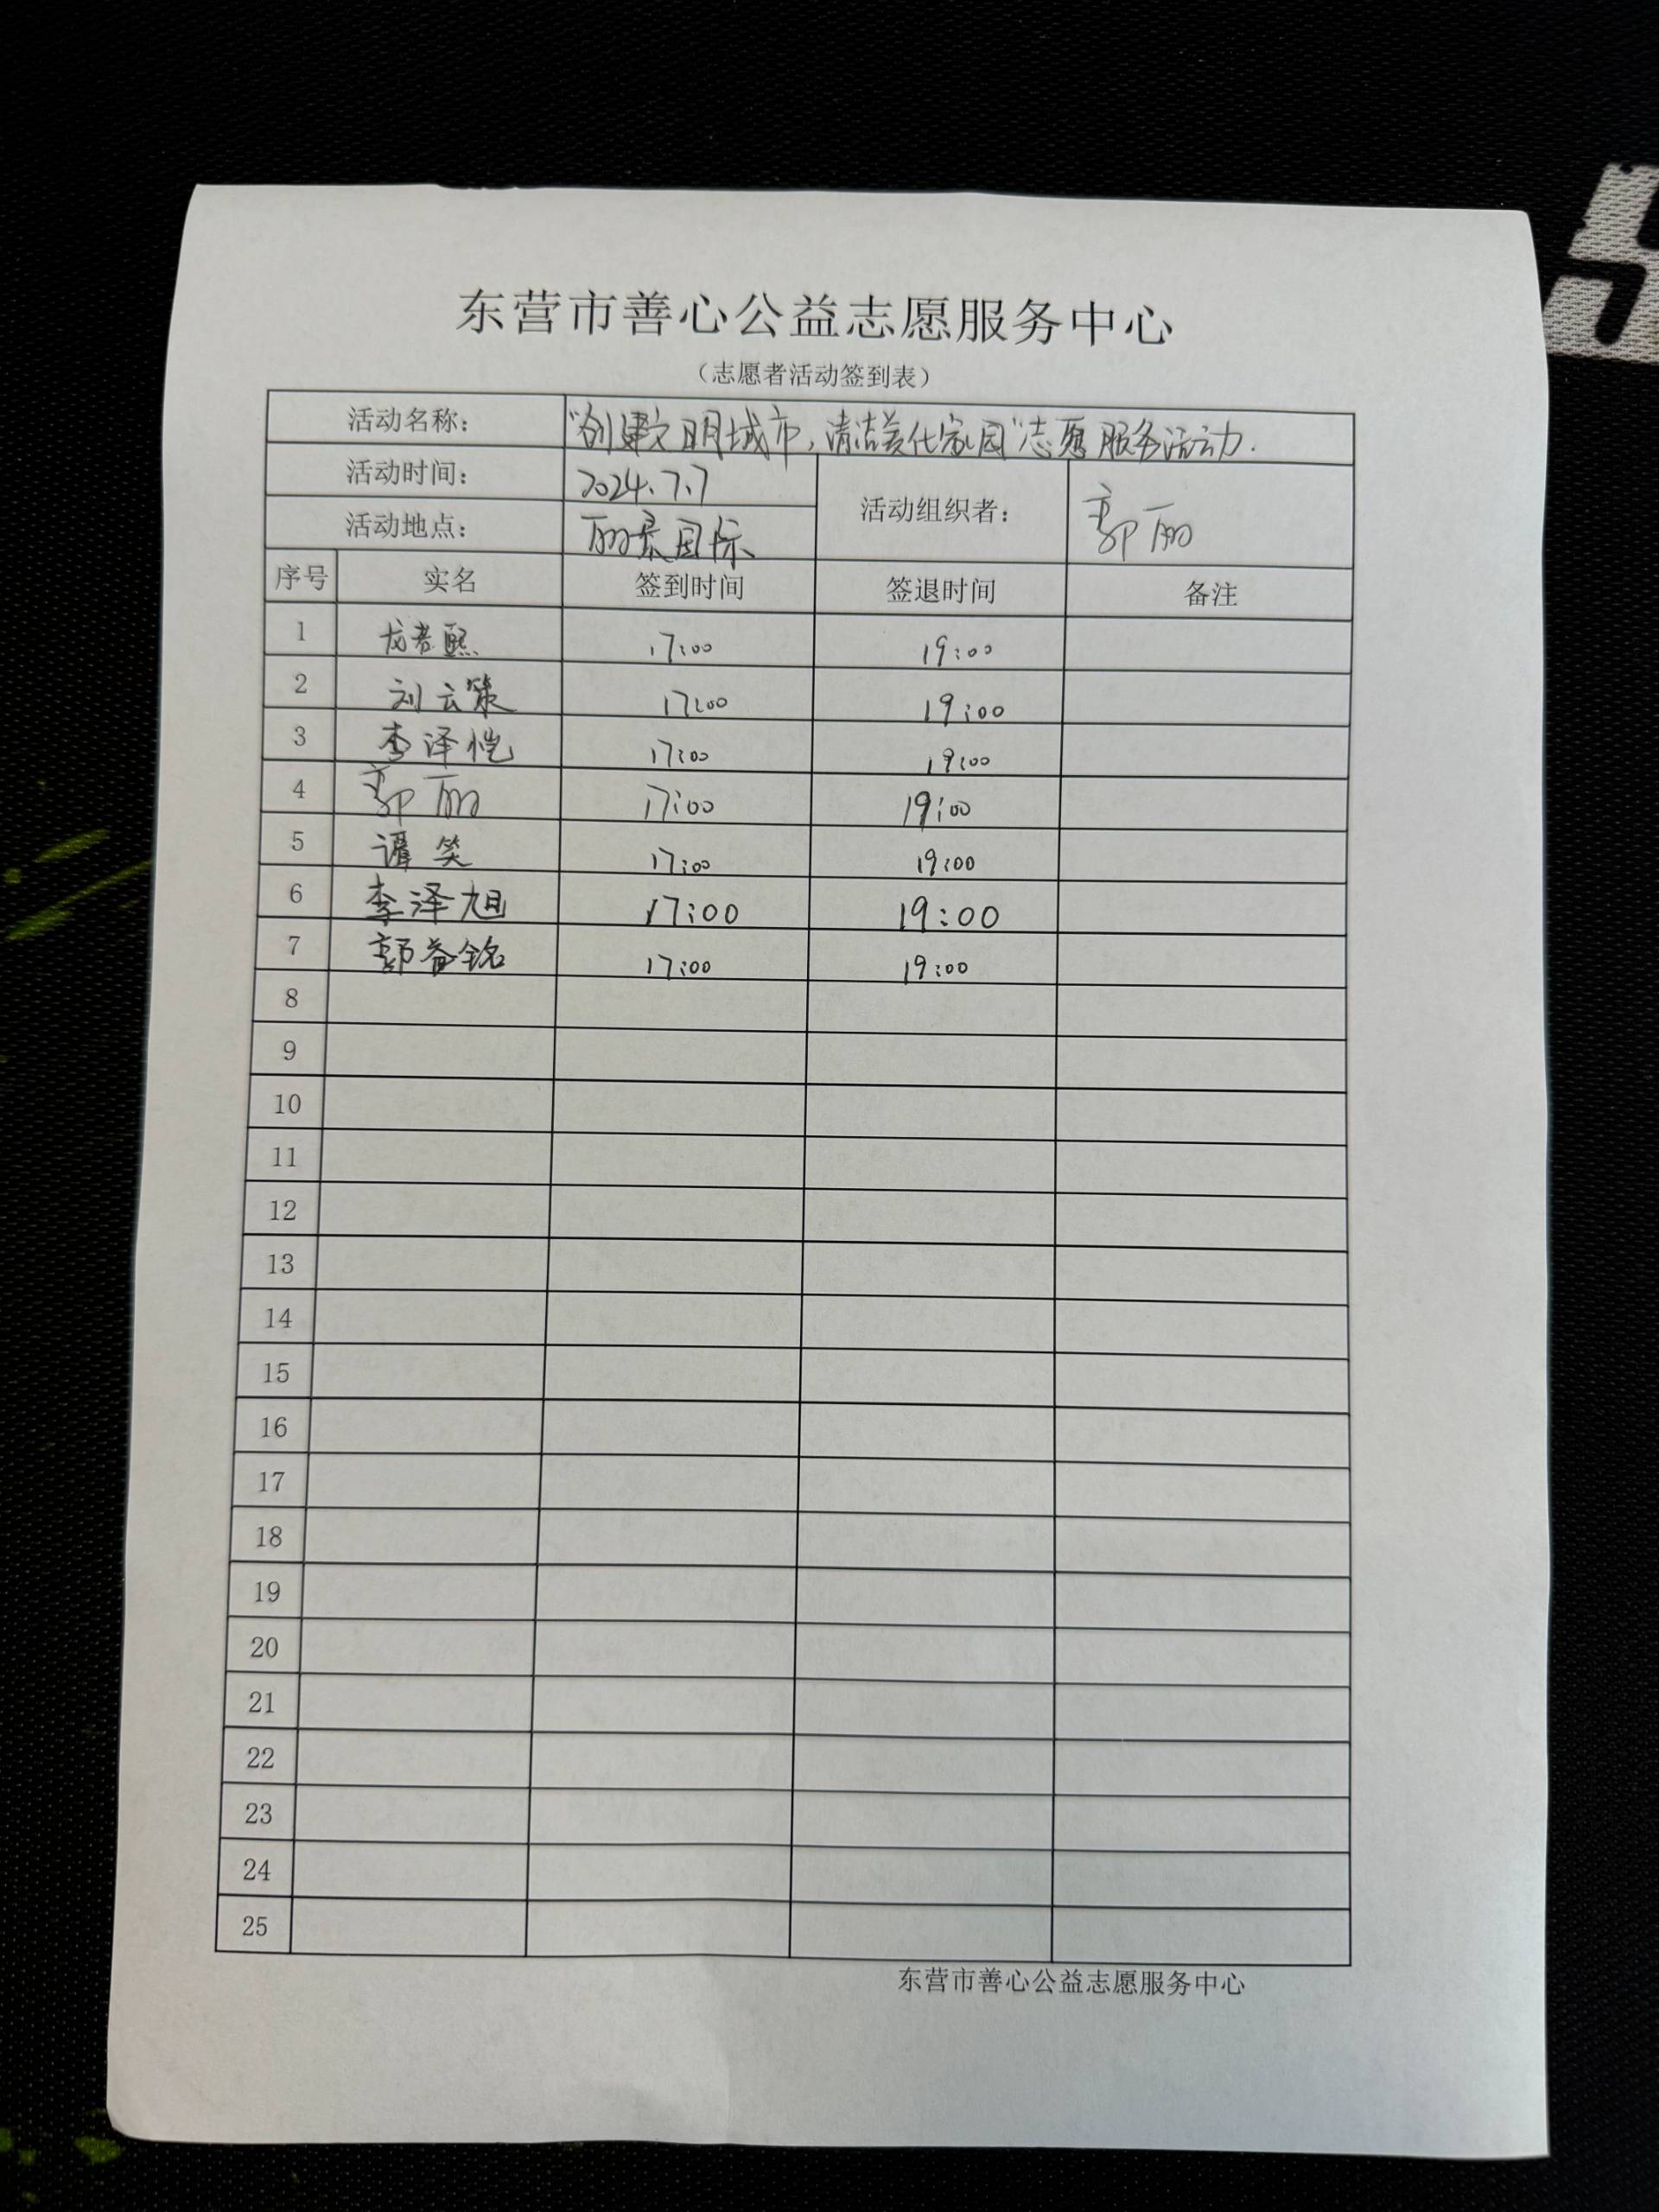 东营市善心公益志愿服务中心
（志愿者活动签到表）
活动名称： "创建文明城市，清洁美化家园"志愿服务活动.
活动时间： 2024.7.7
活动组织者： 郭丽
活动地点： 丽景国际
序号 实名 签到时间 签退时间 备注
1 龙君熙 17:00 19:00
2 刘云策 17:00 19:00
3 李泽恺 17:00 19:00
4 郭丽 17:00 19:00
5 谭笑 17:00 19:00
6 李泽旭 17:00 19:00
7 郭睿铭 17:00 19:00
8
9
10
11
12
13
14
15
16
17
18
19
20
21
22
23
24
25
东营市善心公益志愿服务中心